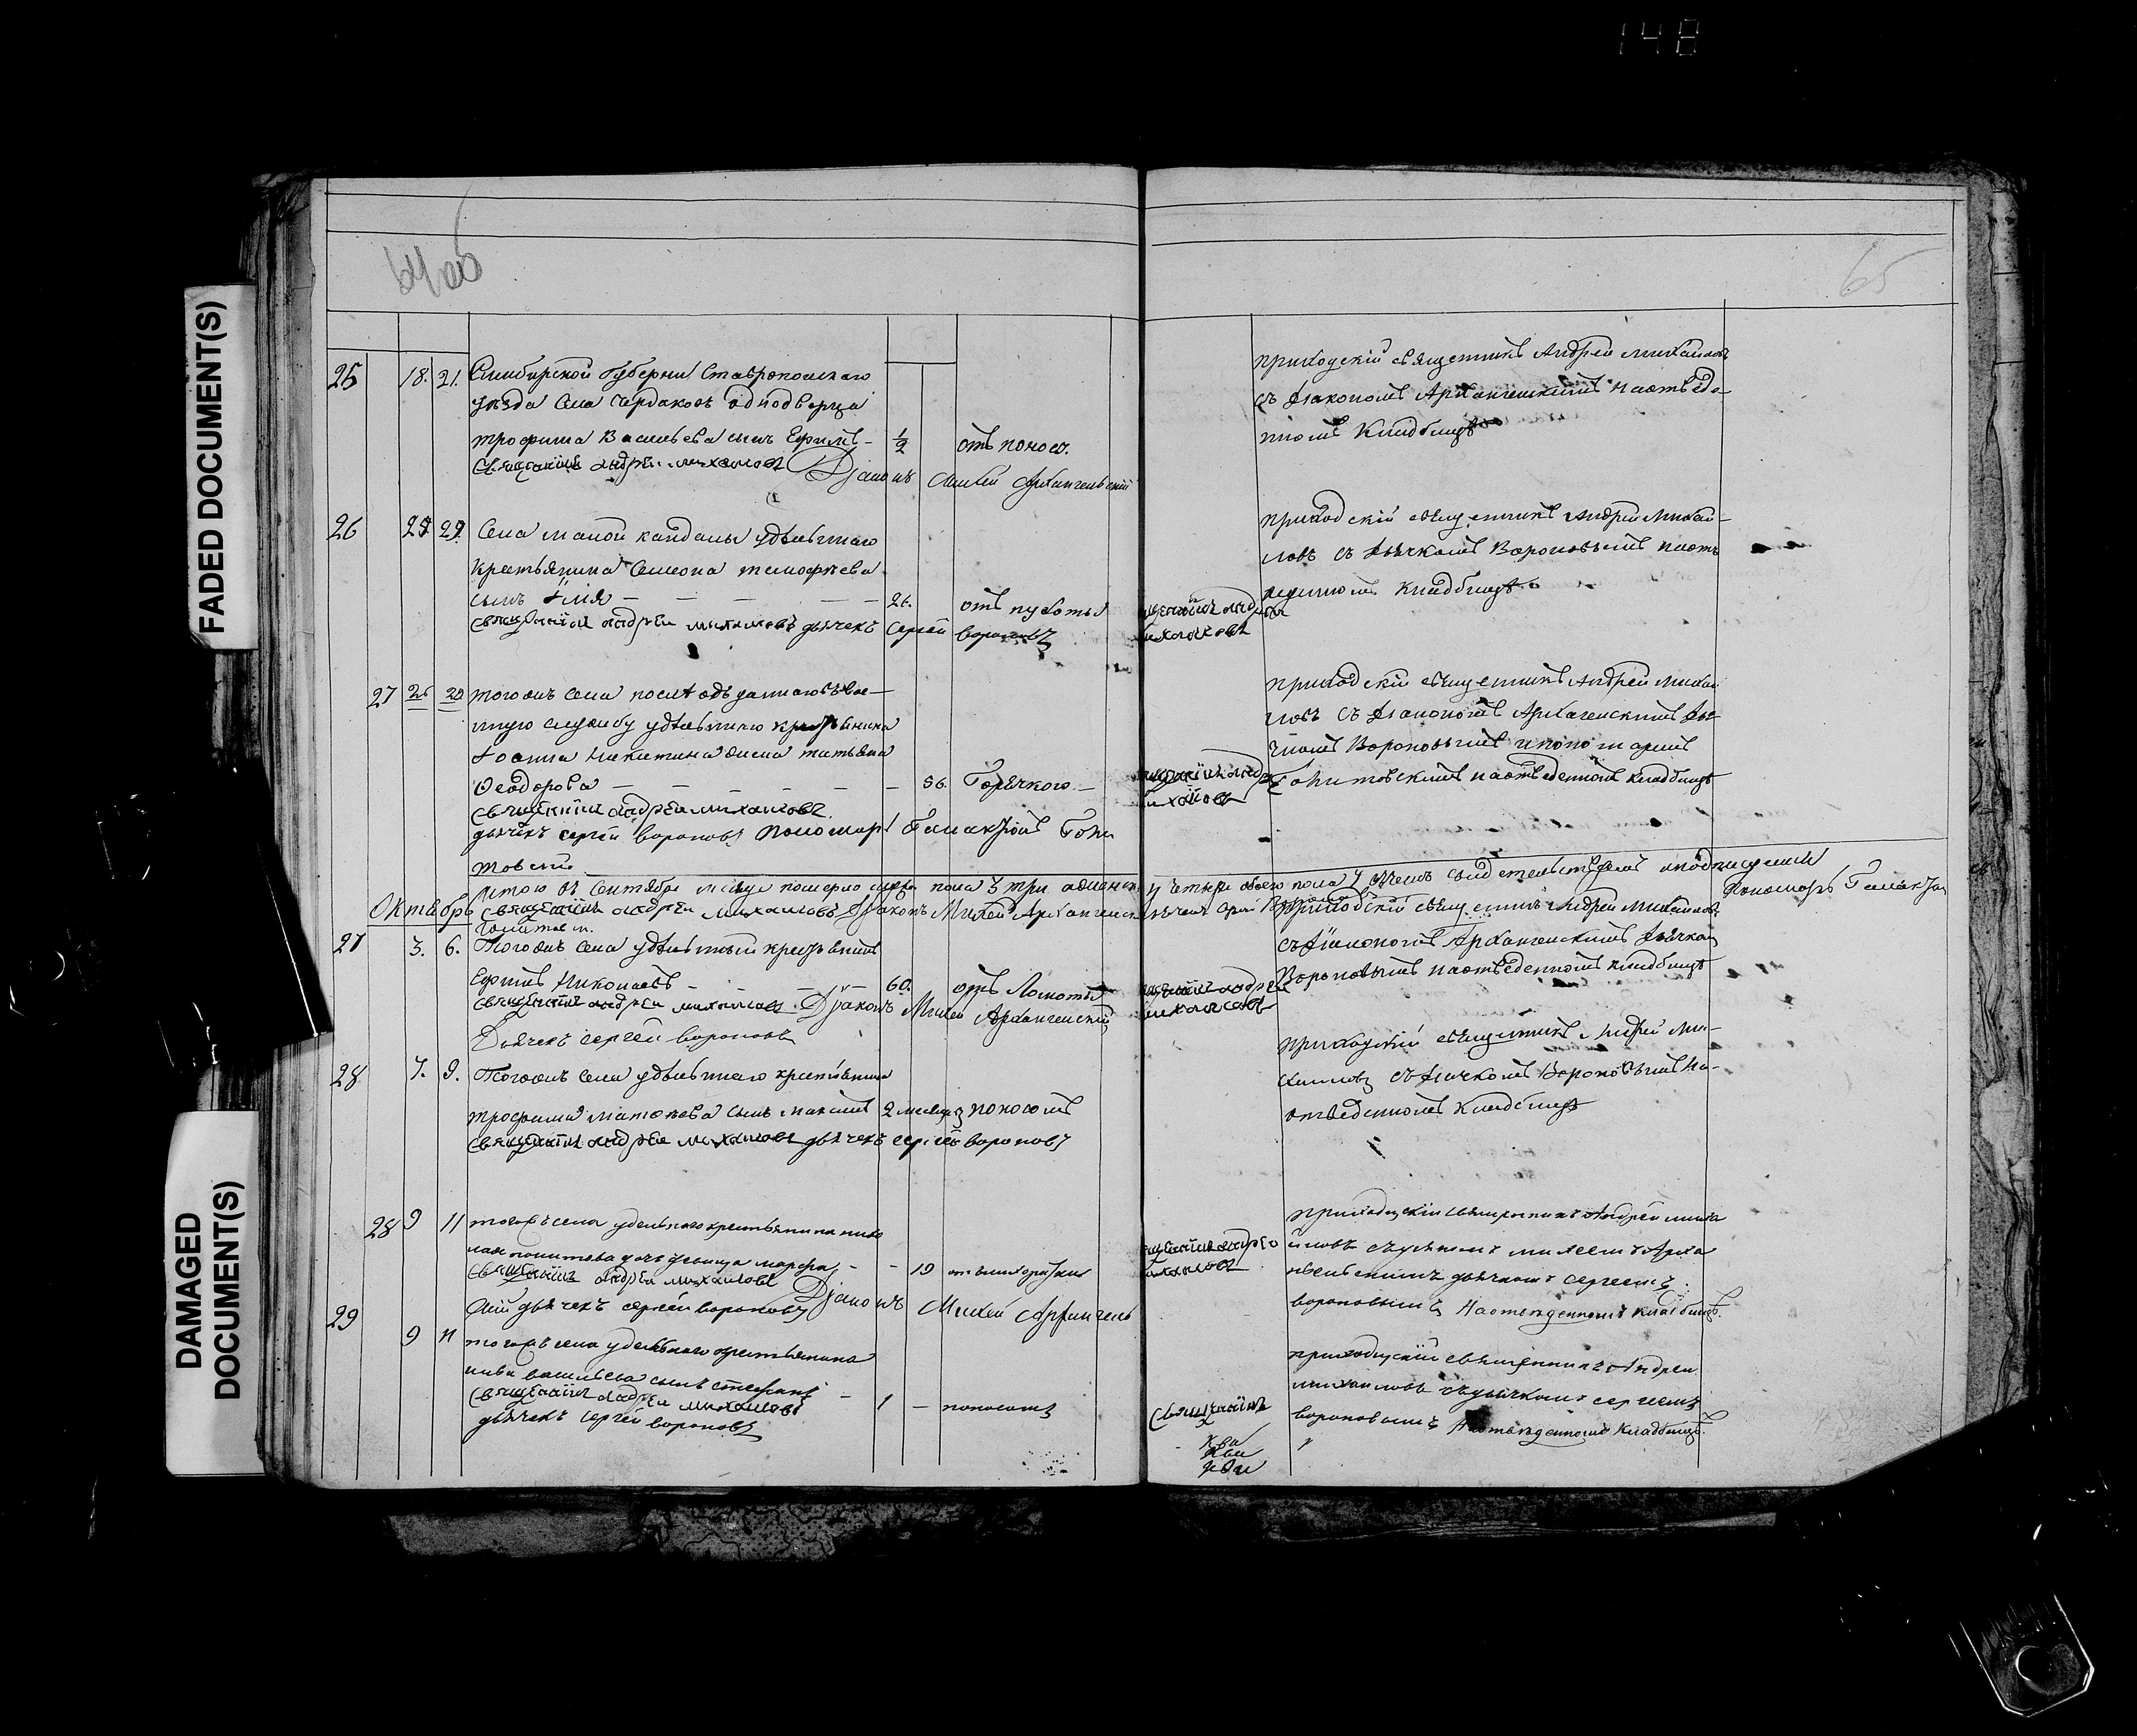 148
FADED DOCUMENT(S)
DAMAGED
DOCUMENT(S)
64 об
65
25 18. 21. Симбирской Губерніи Ставропольскаго
уѣзда Села Чердаковъ однодворца
трофима Васильева сынъ Ефимъ – 1/2 отъ поноса.
священникъ андрей михаиловъ Дьяконъ Михей Архангельскій
приходскій священникъ Андрей михаиловъ
съ діакономъ Архангельскимъ на отведе-
нномъ Кладбищѣ
26 27 29. Села малой кандалы удѣльнаго
крестьянина Семиона тимофѣева
сынъ Илія – – – 26. отъ
священникъ андрей михаиловъ дьячекъ Сергей вороновъ
священникъ андрей
михаиловъ
приходскій священникъ Андрей Михаи-
ловъ съ дьячкомъ Вороновымъ на отве-
денномъ кладбищѣ
27 26 29 тогожъ села послѣ отданнаго въ вое-
нную службу удѣльнаго крестьянина
Іоанна Никитина жена татьяна
Ѳеодорова – – – – 56. Горячкою –
священникъ андрей михаиловъ
дьячекъ сергей вороновъ Пономарь
священникъ андрей
михаиловъ
приходскій священникъ Андрей Михаи
ловъ съ діакономъ Архангельскимъ дья-
чкомъ Вороновымъ и пономаремъ
на отведенномъ кладбищѣ
Итого въ Сентябрѣ месяце померло мужеска пола 3 три а женска 4 четыре обоего пола 7 въ чемъ свидетельствуемъ и подписуемся
Октябрь священникъ андрей михаиловъ Дьяконъ Михей Архангельскій дьячекъ Сергей Пономарь
27 3. 6. Тогожъ села удѣльный крестьянинъ
Ефимъ Николаевъ – – – 60. отъ Ломоты
священникъ андрей михаиловъ Дьяконъ Михей Архангельскій
Дьячекъ сергей вороновъ
священникъ андрей
михаиловъ
Приходскій священникъ Андрей Михаиловъ
съ діакономъ Архангельскимъ дьячкомъ
Вороновымъ на отведенномъ кладбищѣ
28 7. 9. Тогожъ села удѣльнаго крестьянина
трофима матвѣева сынъ максимъ 2 месяцъ поносомъ
священникъ андрей михаиловъ дьячекъ сергей вороновъ
приходскій священникъ Андрей Ми-
хаиловъ съ дьячкомъ Вороновымъ на-
отведенномъ кладбищѣ
28 9 11 тогожъ села удельнаго крестьянина нико
лая дочь девица марфа – – 19
священникъ андрей михаиловъ Дьяконъ Михей Архангель
скій дьячекъ сергей вороновъ
священникъ андрей
михаиловъ
приходскій священникъ Андрей миха
йловъ съ дьякономъ михеемъ Арха
нгельскимъ дьячкомъ сергеемъ
вороновымъ На отведенномъ кладбищѣ.
29 9 11 тогожъ села удельнаго крестьянина
васильева сынъ стефанъ – 1 – поносомъ
священникъ андрей михаиловъ
дьячекъ сергей вороновъ
священникъ
приходскій священникъ Андрей
михаиловъ съ дьячкомъ сергеемъ
вороновымъ На отведенномъ кладбищѣ.